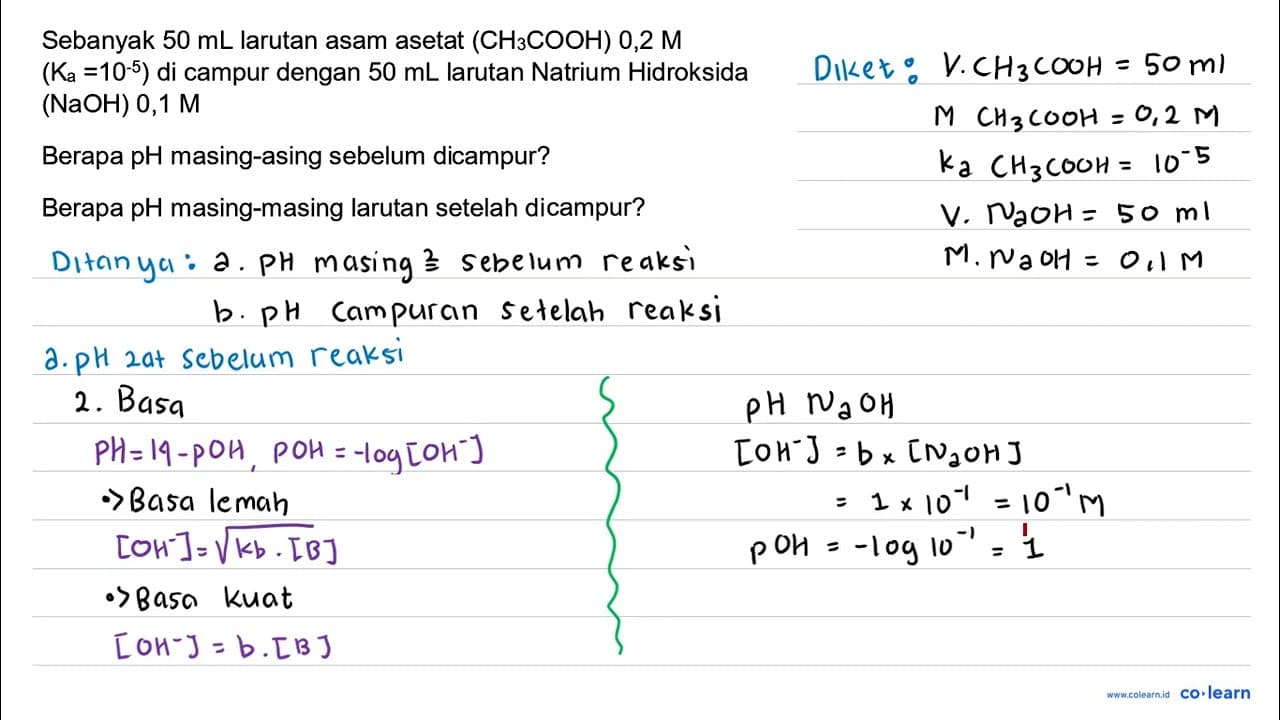 Sebanyak 50 mL larutan asam asetat (CH₃COOH) 0,2 M
(Kₐ =10⁻⁵) di campur dengan 50 mL larutan Natrium Hidroksida
(NaOH) 0,1 M
Berapa pH masing-asing sebelum dicampur?
Berapa pH masing-masing larutan setelah dicampur?
Diket : V. CH₃COOH = 50 ml
M CH₃COOH = 0,2 M
ka CH₃COOH = 10⁻⁵
V. NaOH = 50 ml
M. NaOH = 0,1 M
Ditanya : a. pH masing² sebelum reaksi
b. pH Campuran setelah reaksi
a. pH zat sebelum reaksi
2. Basa
PH = 14 - pOH, POH = -log[OH⁻]
•> Basa lemah
[OH⁻] = √kb . [B]
•> Basa kuat
[OH⁻] = b . [B]
pH NaOH
[OH⁻] = b x [NaOH]
= 1 x 10⁻¹ = 10⁻¹ M
pOH = -log 10⁻¹ = 1
www.colearn.id co·learn